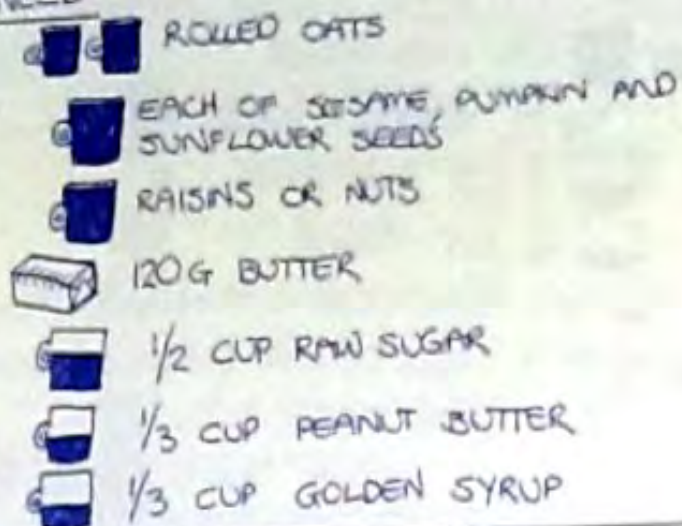 ROLLED OATS
EACH OF SESAME, PUMPKIN AND
SUNFLOWER SEEDS
RAISINS OR NUTS
120G BUTTER
1/2 CUP RAW SUGAR
1/3 CUP PEANUT BUTTER
1/3 CUP GOLDEN SYRUP